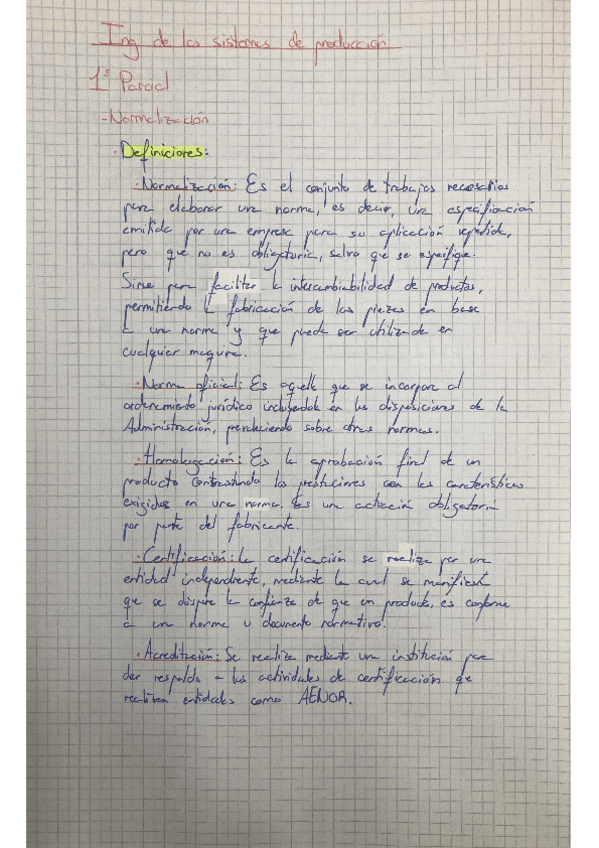 Ing de los sistemas de producción
1º Parcial
-Normalización
·Definiciones:
·Normalización: Es el conjunto de trabajos necesarios
para elaborar una norma, es decir, una especificación
emitida por una empresa para su aplicación repetida,
pero que no es obligatoria, salvo que se especifique.
Sirve para facilitar la intercambiabilidad de productos,
permitiendo la fabricación de las piezas en base
a una norma y que puede ser utilizada en
cualquier máquina.
·Norma oficial: Es aquella que se incorpora al
ordenamiento jurídico incluyendola en las disposiciones de la
Administración, prevaleciendo sobre otras normas.
·Homologación: Es la aprobación final de un
producto contrastando las prestaciones con las características
exigidas en una norma. Es un actuación obligatoria
por parte del fabricante.
·Certificación: La certificación se realiza por una
entidad independiente, mediante la cual se manifiesta
que se dispone la confianza de que un producto, es conforme
a un norma u documento normativo.
·Acreditación: Se realiza mediante una institución para
dar respaldo a las actividades de certificación que
realizan entidades como AENOR.